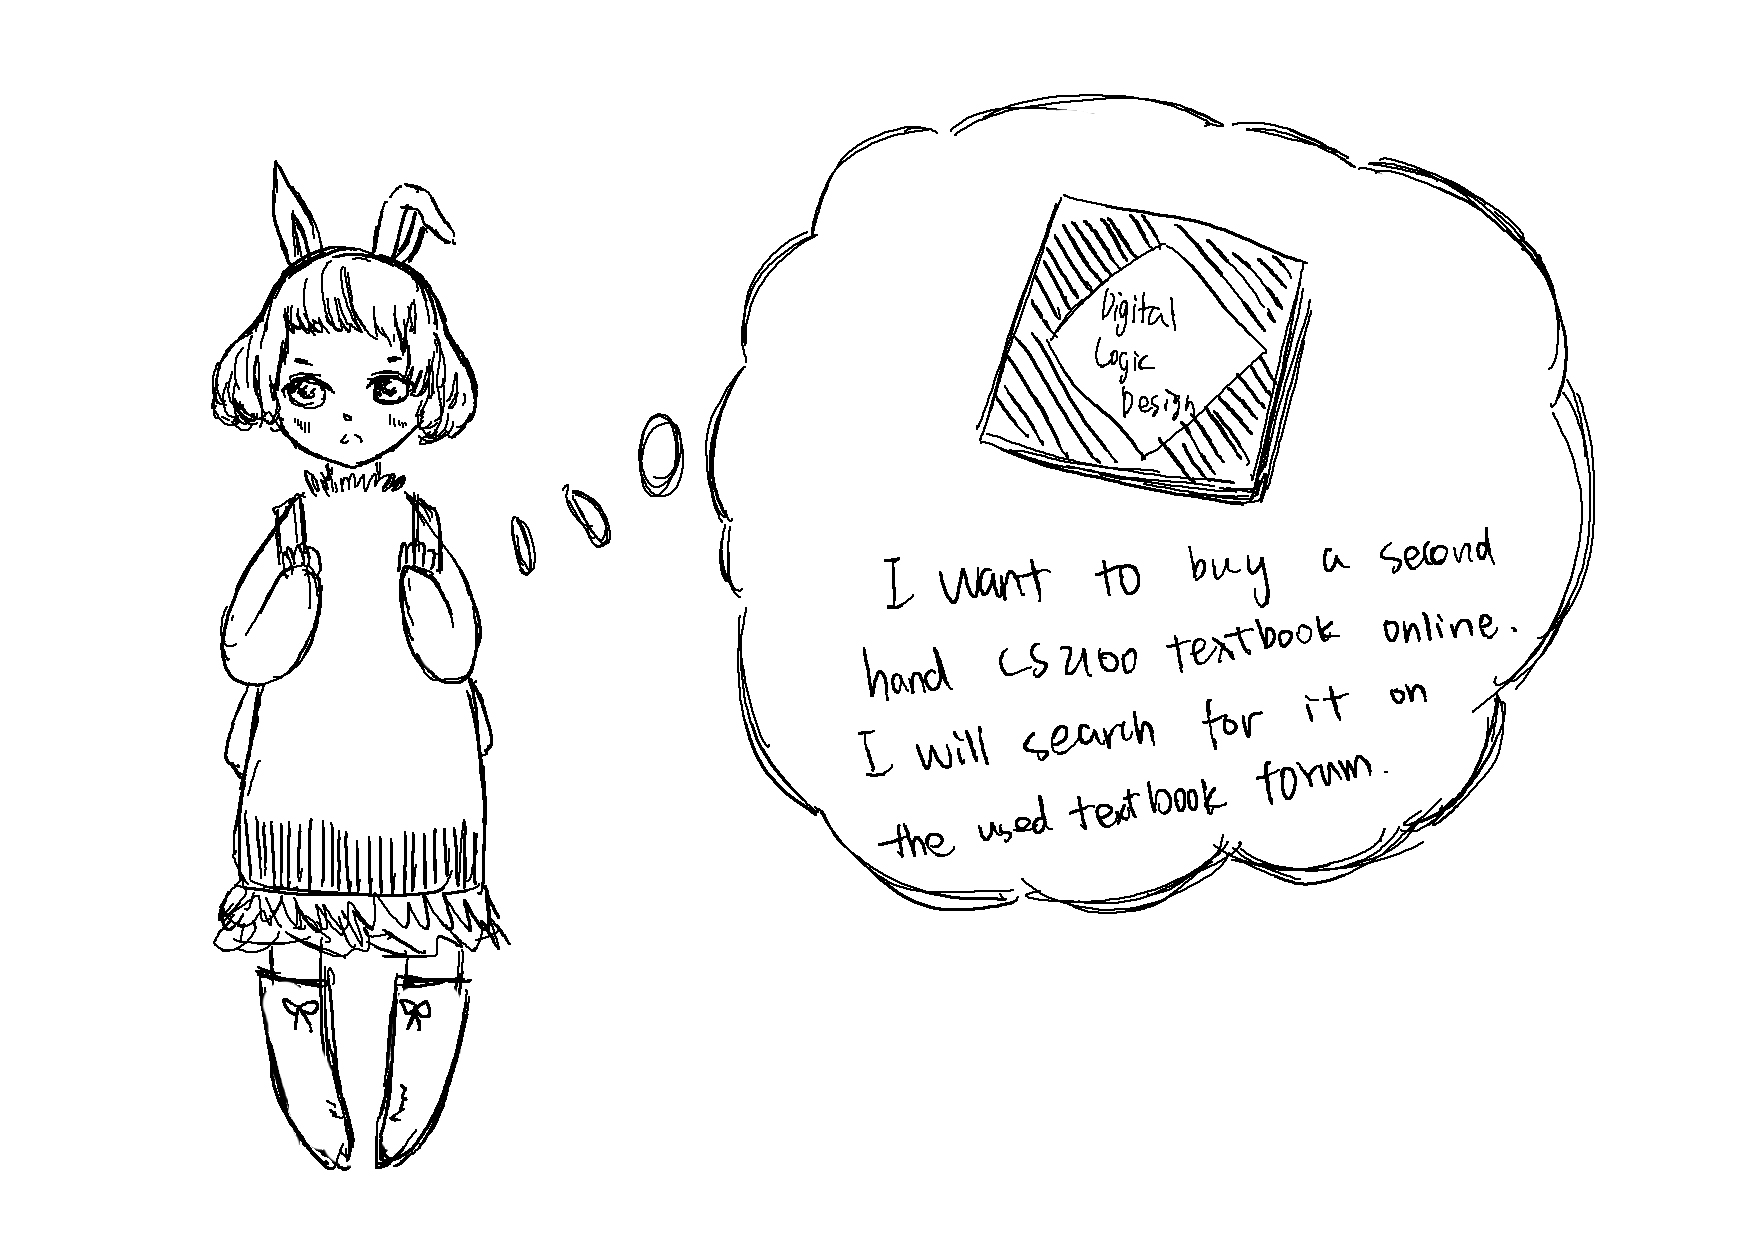 Digital
Logic
Design
I want to buy a second
hand CS2100 textbook online.
I will search for it on
the used textbook forum.